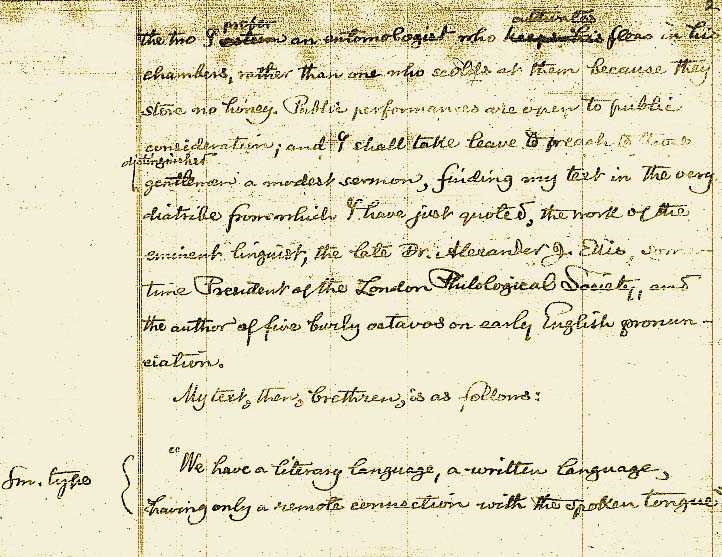 2
prefer cultivates
the two I esteem an entomologist who keeps his fleas in his
chambers, rather than one who scolds at them because they
store no honey. Public performances are open to public
consideration; and I shall take leave to preach to these
distinguished
gentlemen a modest sermon, finding my text in the very
diatribe from which I have just quoted, the work of the
eminent linguist, the late Dr. Alexander J. Ellis, some-
time President of the London Philological Society, and
the author of five burly octavos on early English pronun-
ciation.
My text, then, brethren, is as follows:
Sm. type
"We have a literary language, a written language,
having only a remote connection with the spoken tongue